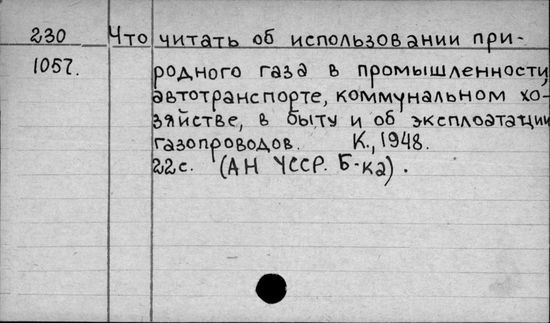 230 Что читать об использовании при-
1057. родного газа в промышленности,
автотранспорте, коммунальном хо-
зяйстве, в быту и об эксплоатации
газопроводов. К., 1948.
22с. (АН УССР. Б-ка).